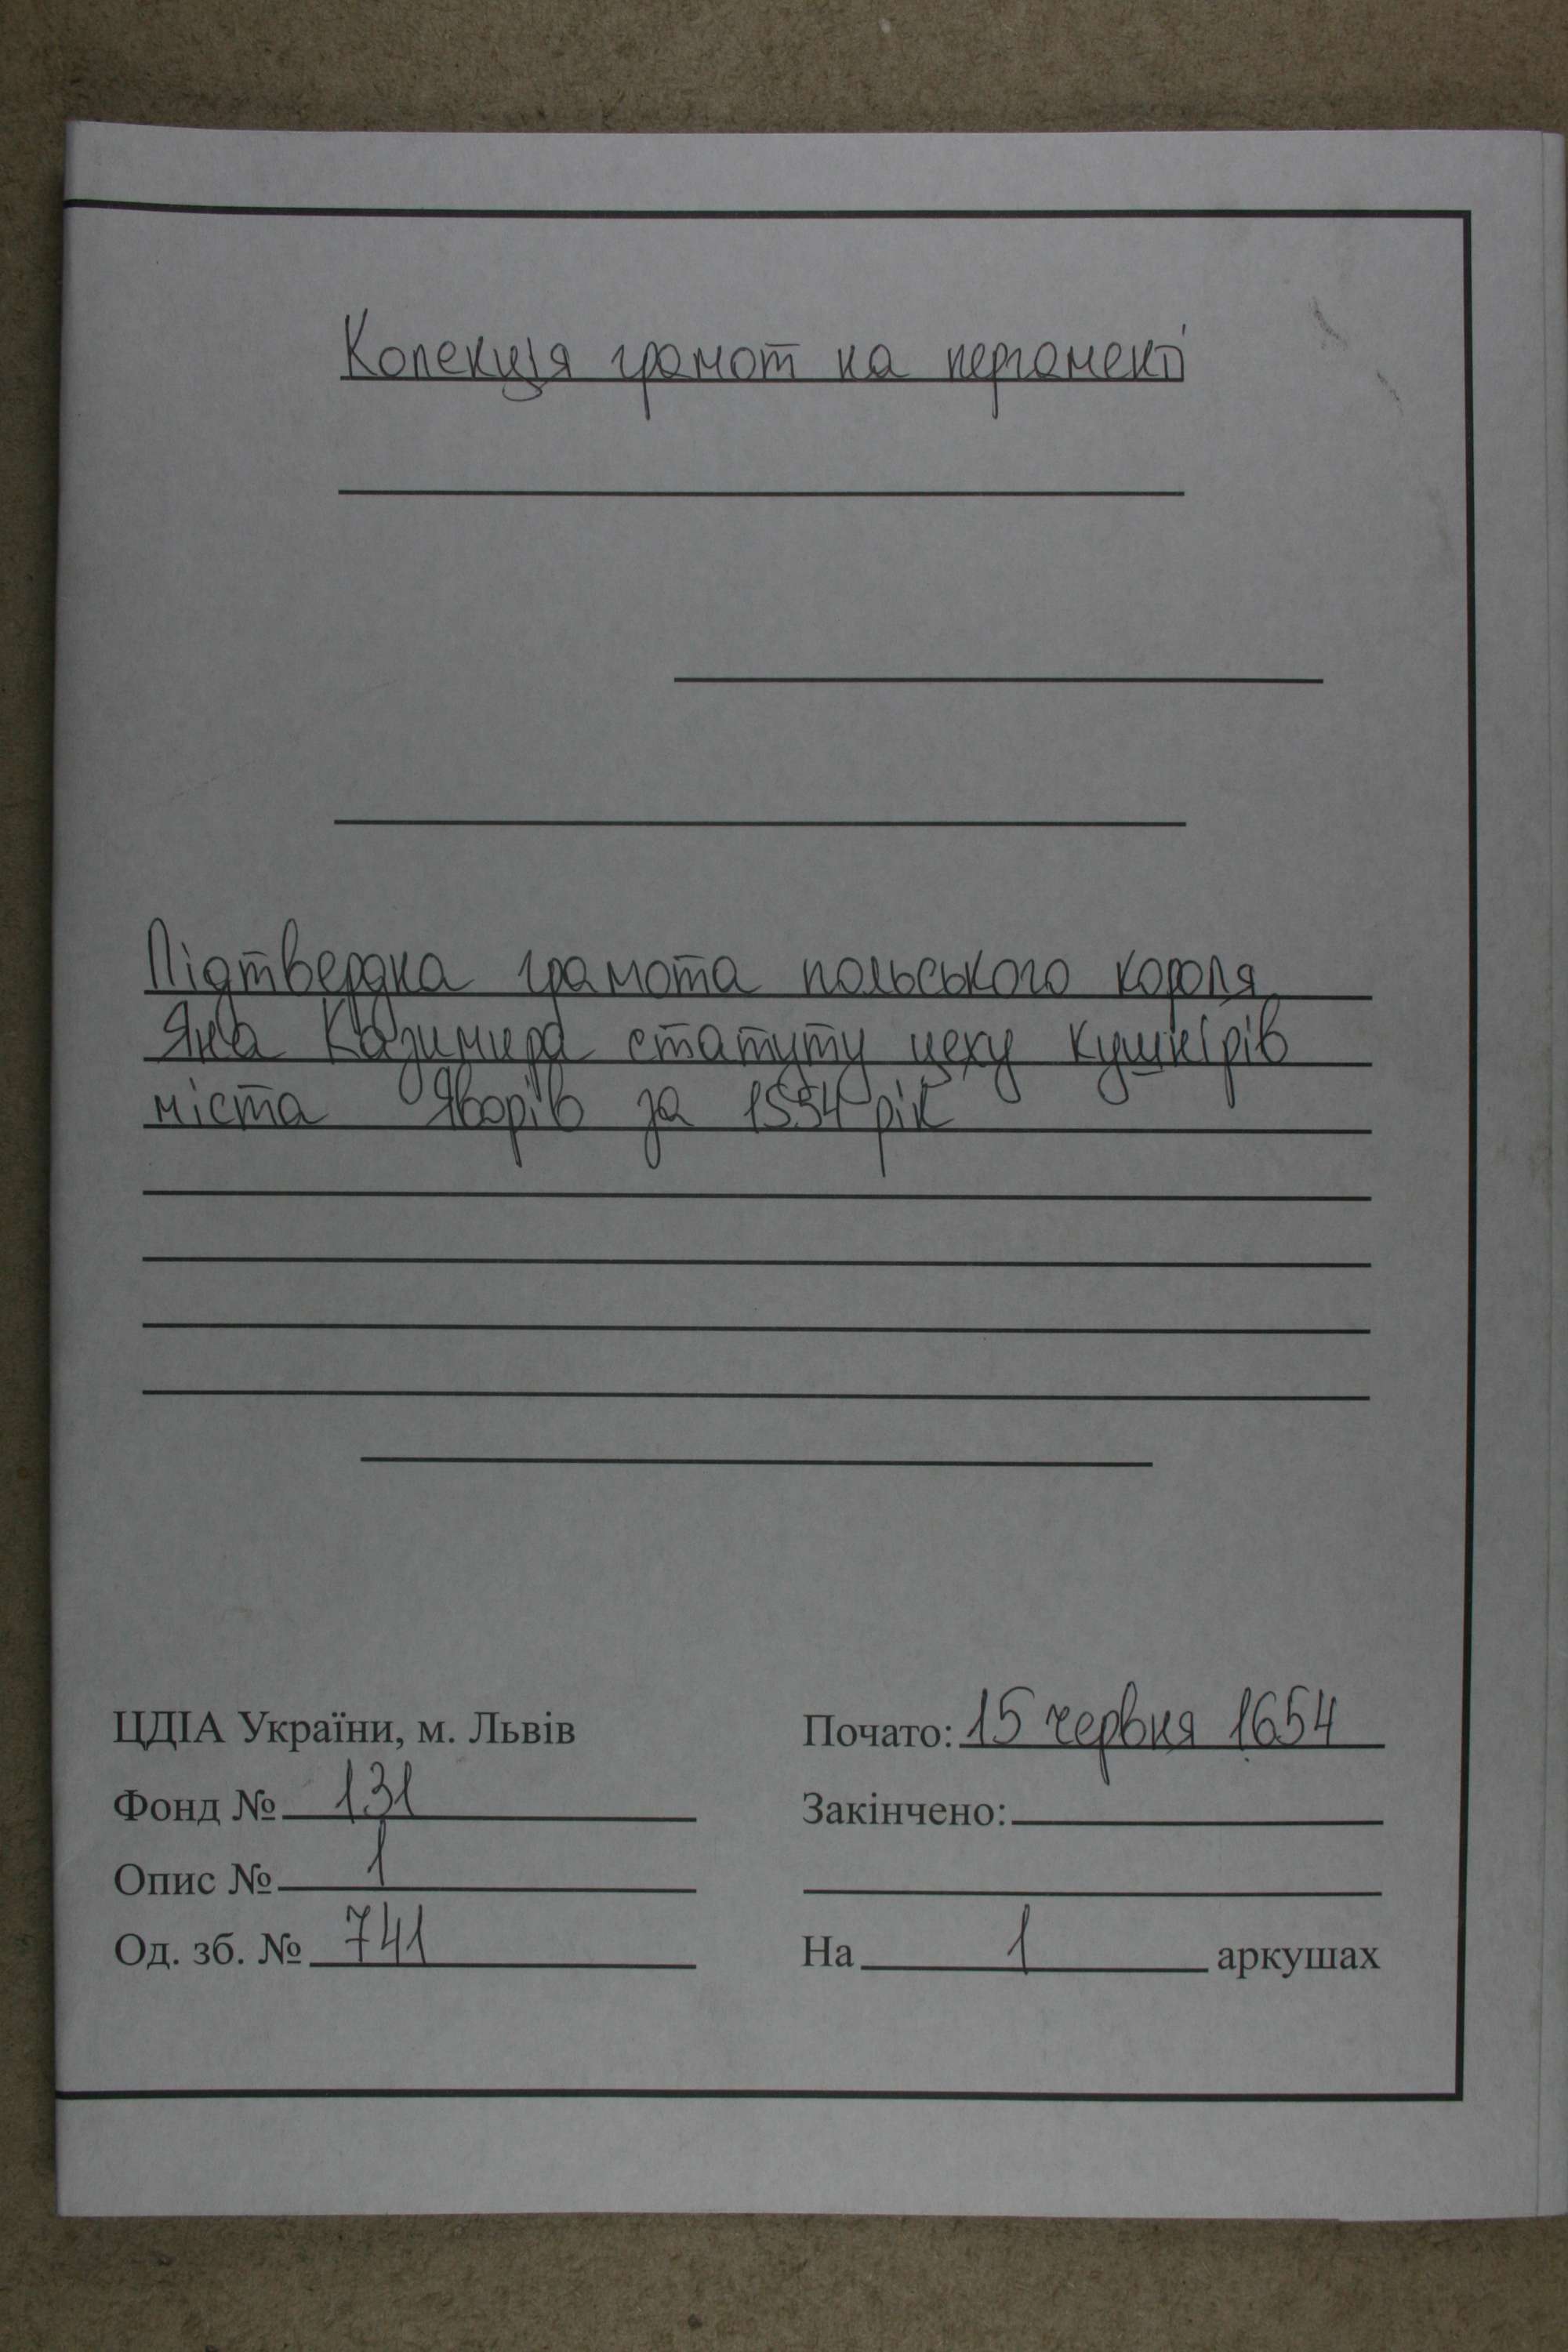 Колекція грамот на пергаменті
Підтвердна грамота польського короля
Яна Казимира статуту цеху кушнірів
міста Яворів за 1554 рік
ЦДІА України, м. Львів
Фонд № 131
Опис № 1
Од. зб. № 741
Почато: 15 червня 1654
Закінчено:
На 1 аркушах